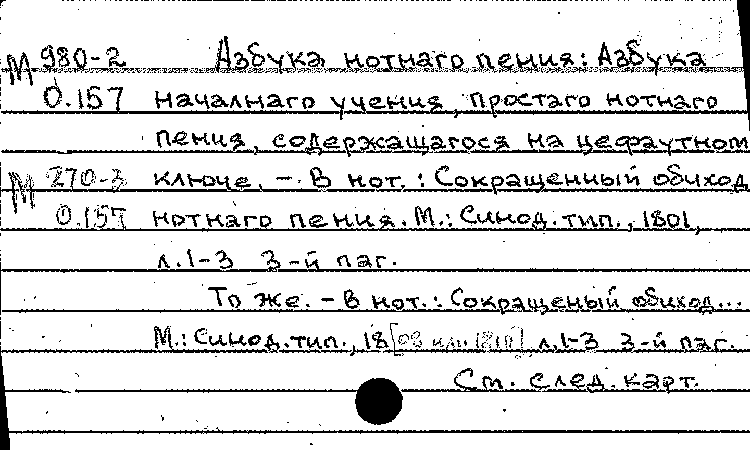 М 980-2 Азбука нотнаго пения: Азбука
0.157 началнаго учения, простаго нотнаго
пения, содержащагося на цефаутном
М 270-3 ключе. – В нот.: Сокращенный обиход
0.157 нотнаго пения. М.: Синод. тип., 1801,
л. 1-3 3-й паг.
То же. – В нот.: Сокращеный обиход...
М.: Синод. тип., 18[08 или 1810] л. 1-3 3-й паг.
См. след. карт.